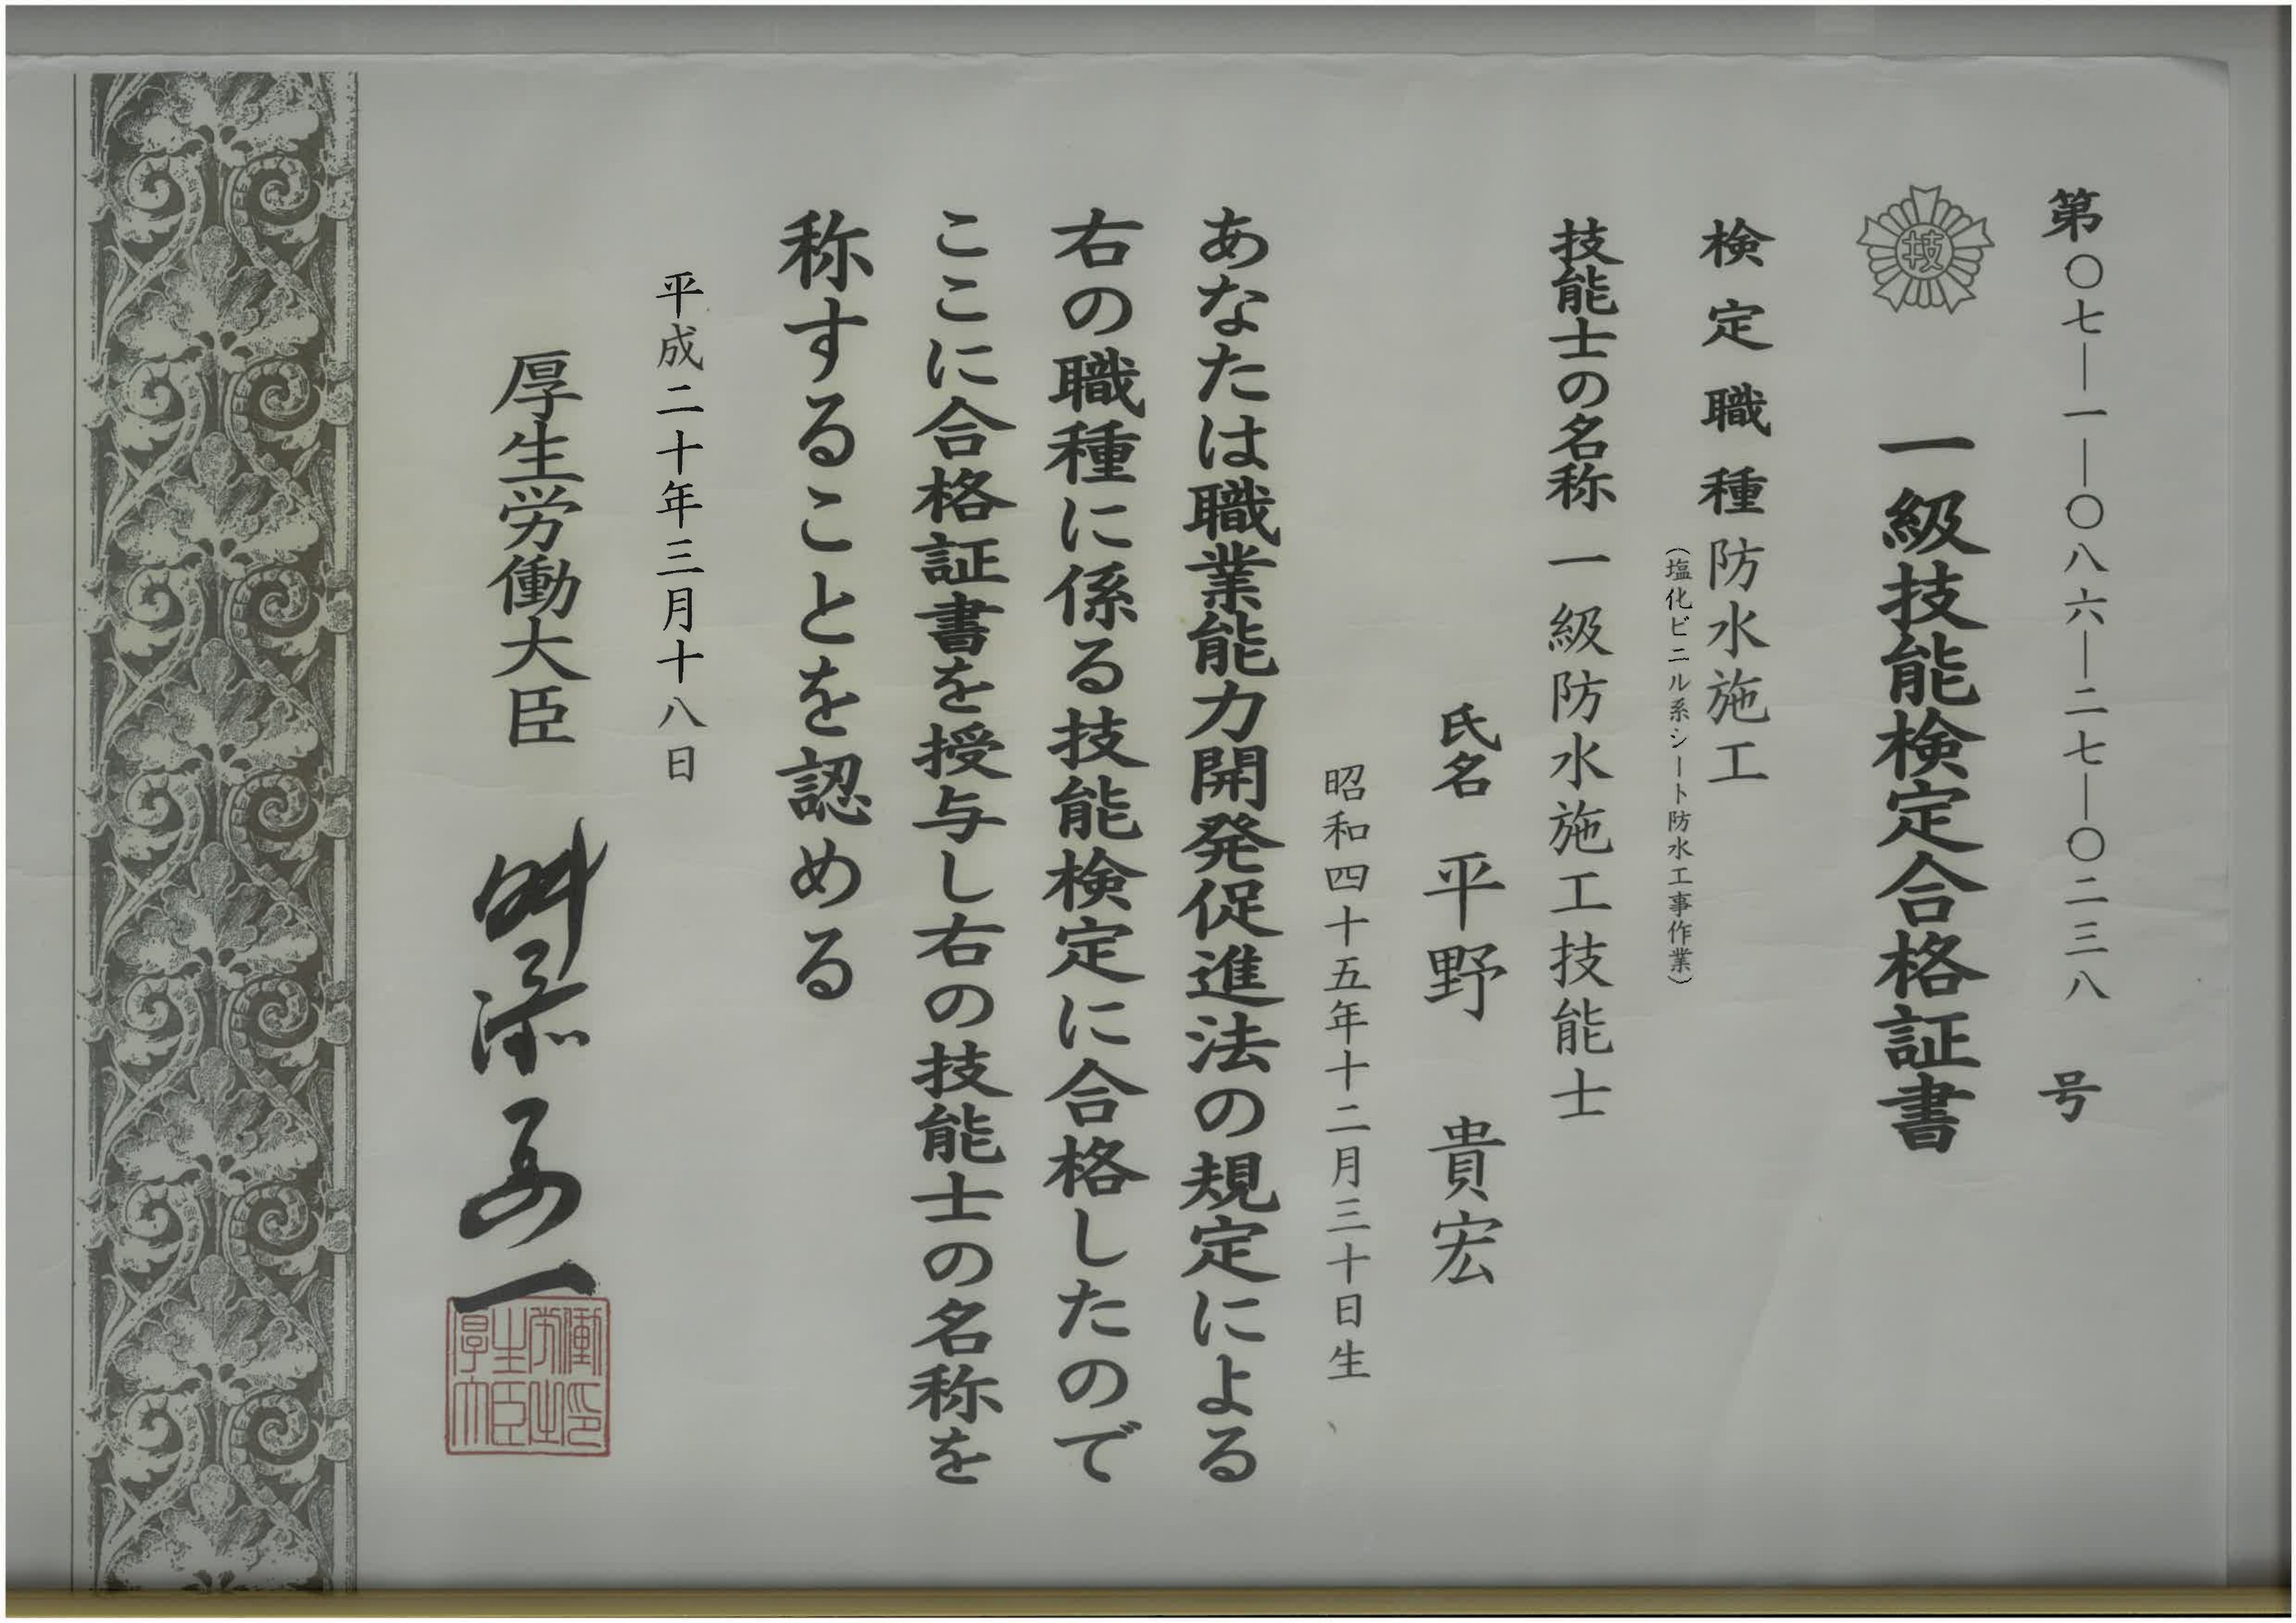 第〇七―一―〇八六―二七―〇二三八 号
技
一級技能検定合格証書
検定職種 防水施工
(塩化ビニル系シート防水工事作業)
技能士の名称 一級防水施工技能士
氏名 平野 貴宏
昭和四十五年十二月三十日生
あなたは職業能力開発促進法の規定による
右の職種に係る技能検定に合格したので
ここに合格証書を授与し右の技能士の名称を
称することを認める
平成二十年三月十八日
厚生労働大臣 舛添要一